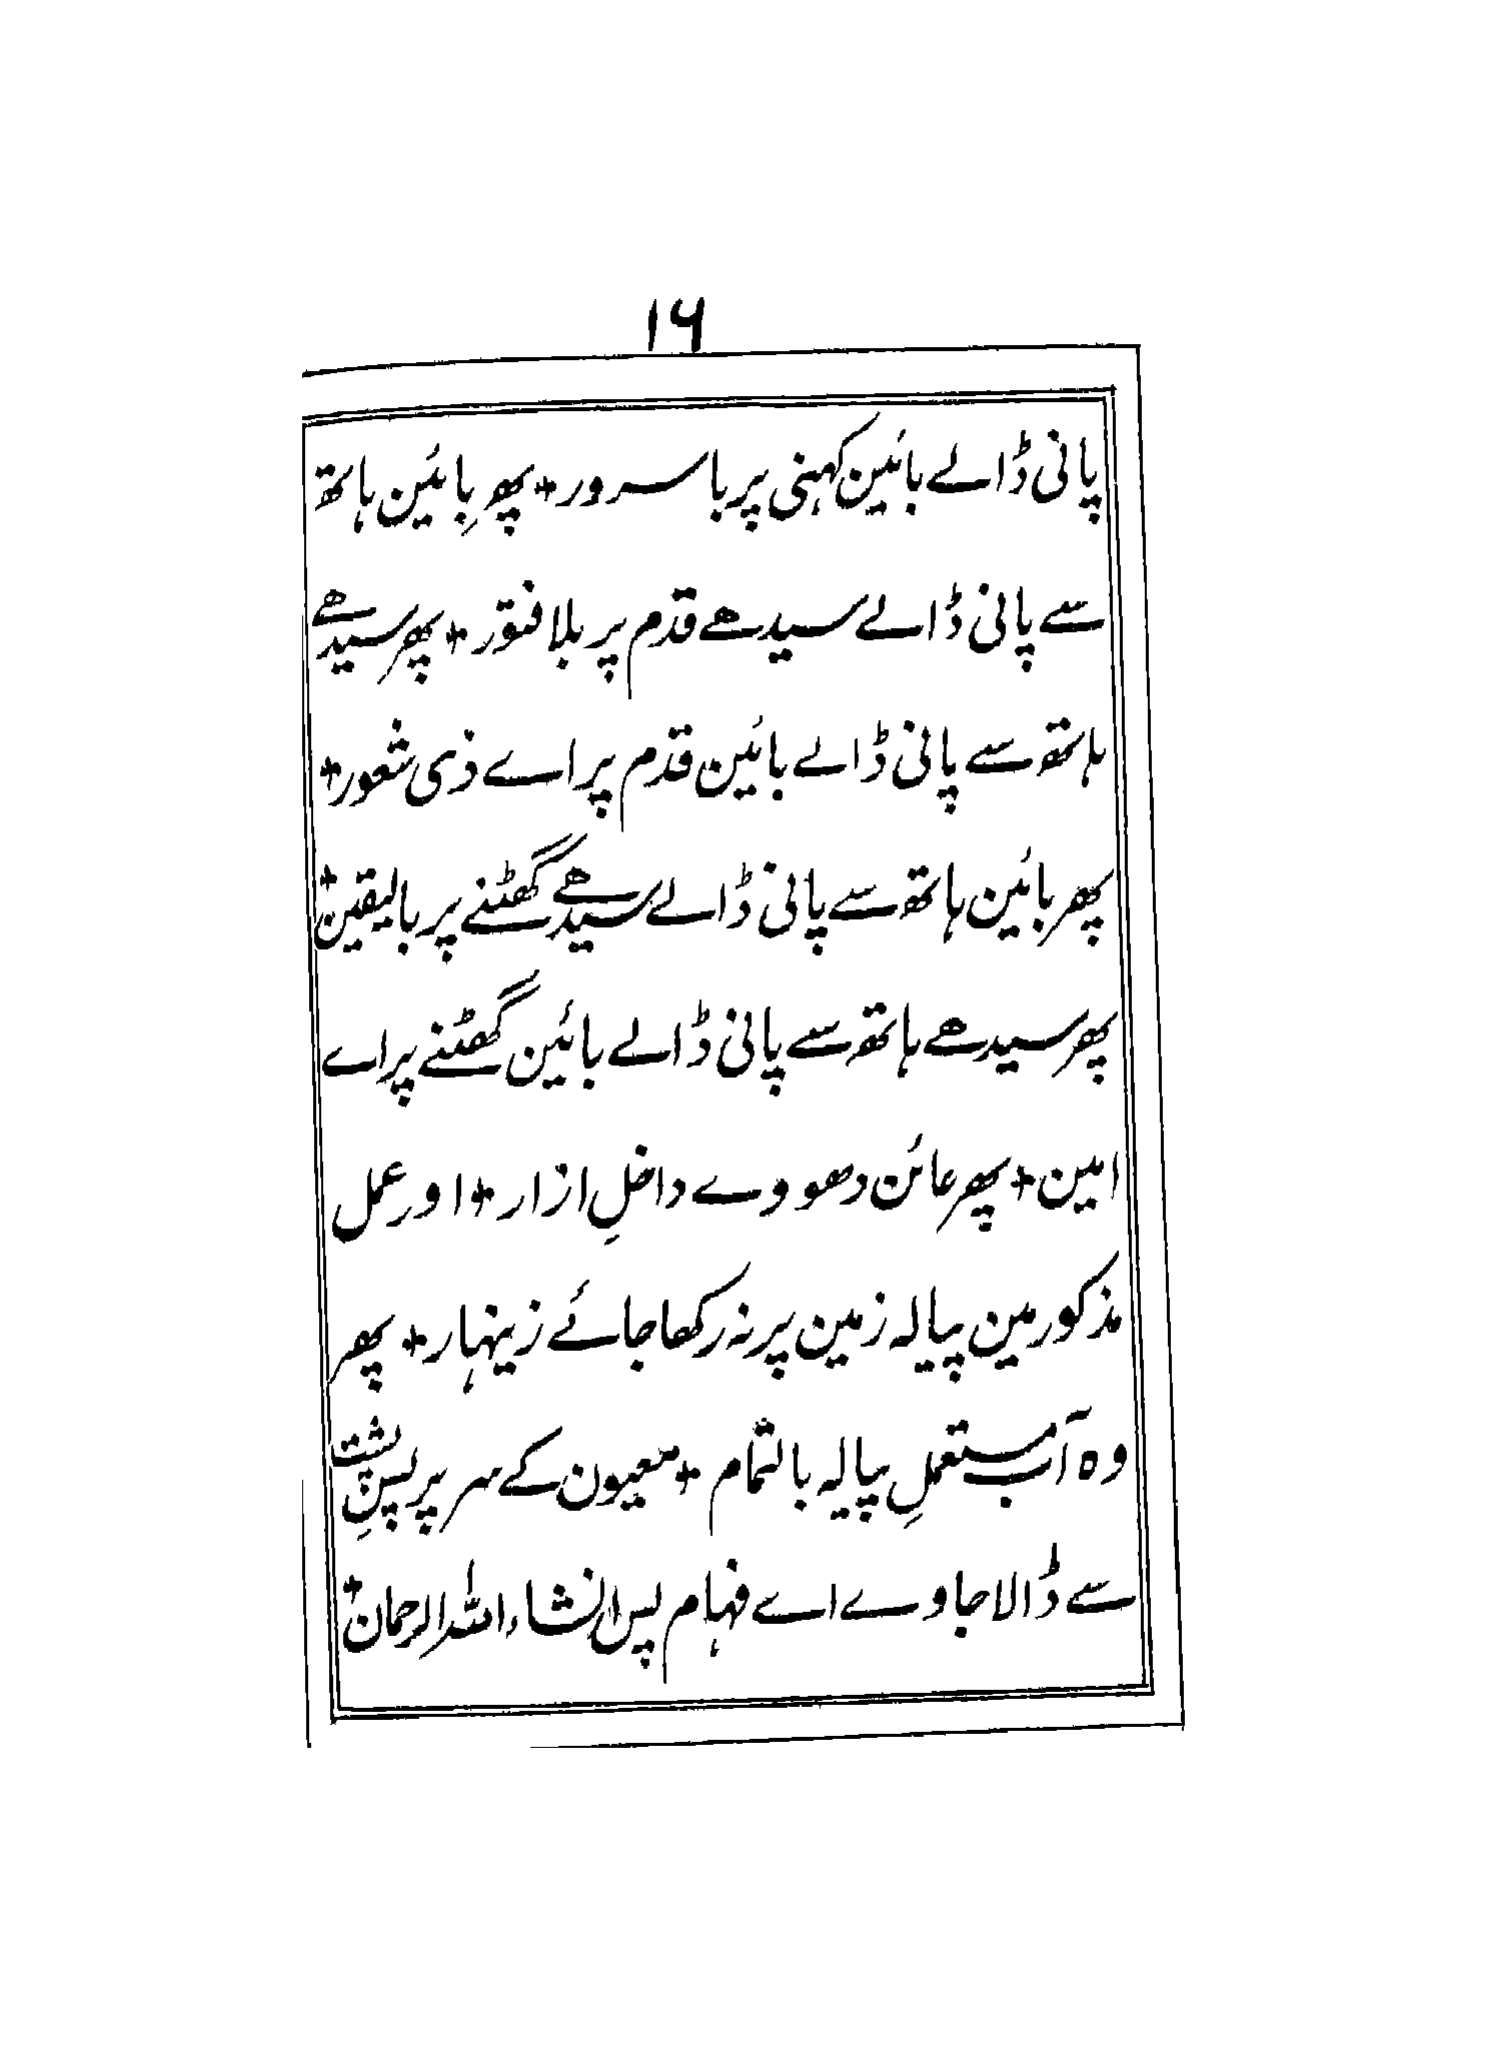 ۱۶
پانی ڈالے بائین کہنی پر باسرور + پھر بائین ہاتھ
سے پانی ڈالے سیدھے قدم پر بلا فتور + پھر سیدھے
ہاتھ سے پانی ڈالے بائین قدم پر اے ذی شعور +
پھر بائین ہاتھ سے پانی ڈالے سیدھے گھٹنے پر بالیقین +
پھر سیدھے ہاتھ سے پانی ڈالے بائین گھٹنے پر اے
امین + پھر عائن دھووے داخلِ ازار + اور عمل
مذکور مین پیالہ زمین پر نہ رکھا جائے زینہار + پھر
وہ آب مستعملِ پیالہ بالتمام + معیون کے سر پر پسِ پشت
سے ڈالا جاوے اے فہام پس انشاء اللہ الرحمان +